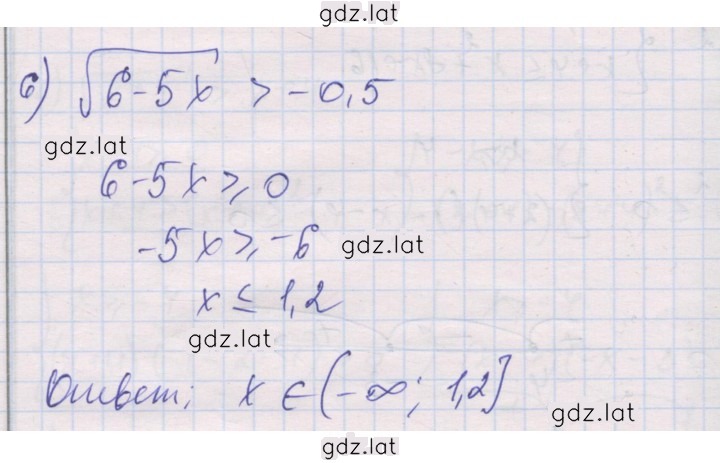 gdz.lat
б) √(6-5x) > -0,5
gdz.lat
6-5x ≥ 0
-5x ≥ -6 gdz.lat
x ≤ 1,2
gdz.lat
Ответ: x ∈ (-∞; 1,2]
gdz.lat
gdz.lat